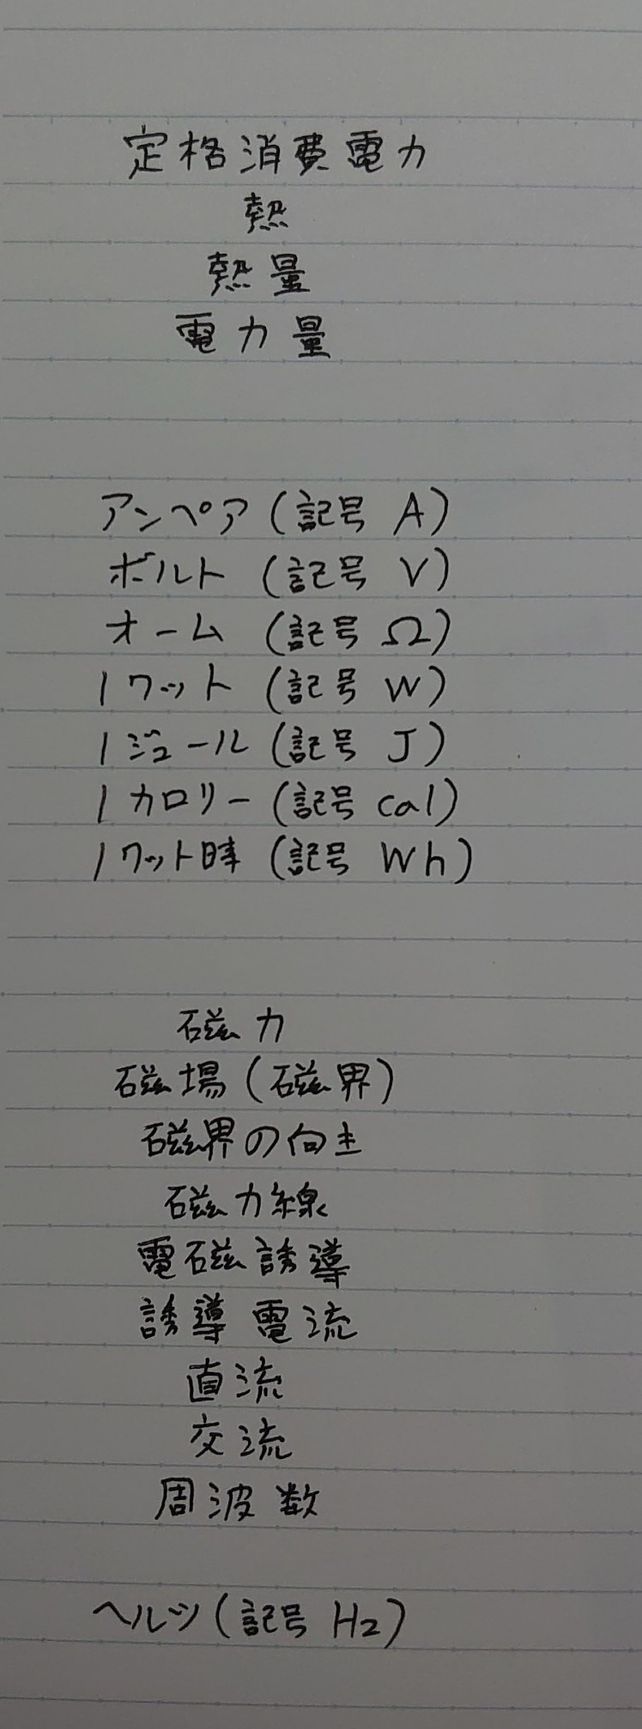 定格消費電力
熱
熱量
電力量
アンペア(記号 A)
ボルト(記号 V)
オーム(記号 Ω)
1ワット(記号 W)
1ジュール(記号 J)
1カロリー(記号 cal)
1ワット時(記号 Wh)
磁力
磁場(磁界)
磁界の向き
磁力線
電磁誘導
誘導電流
直流
交流
周波数
ヘルツ(記号 Hz)